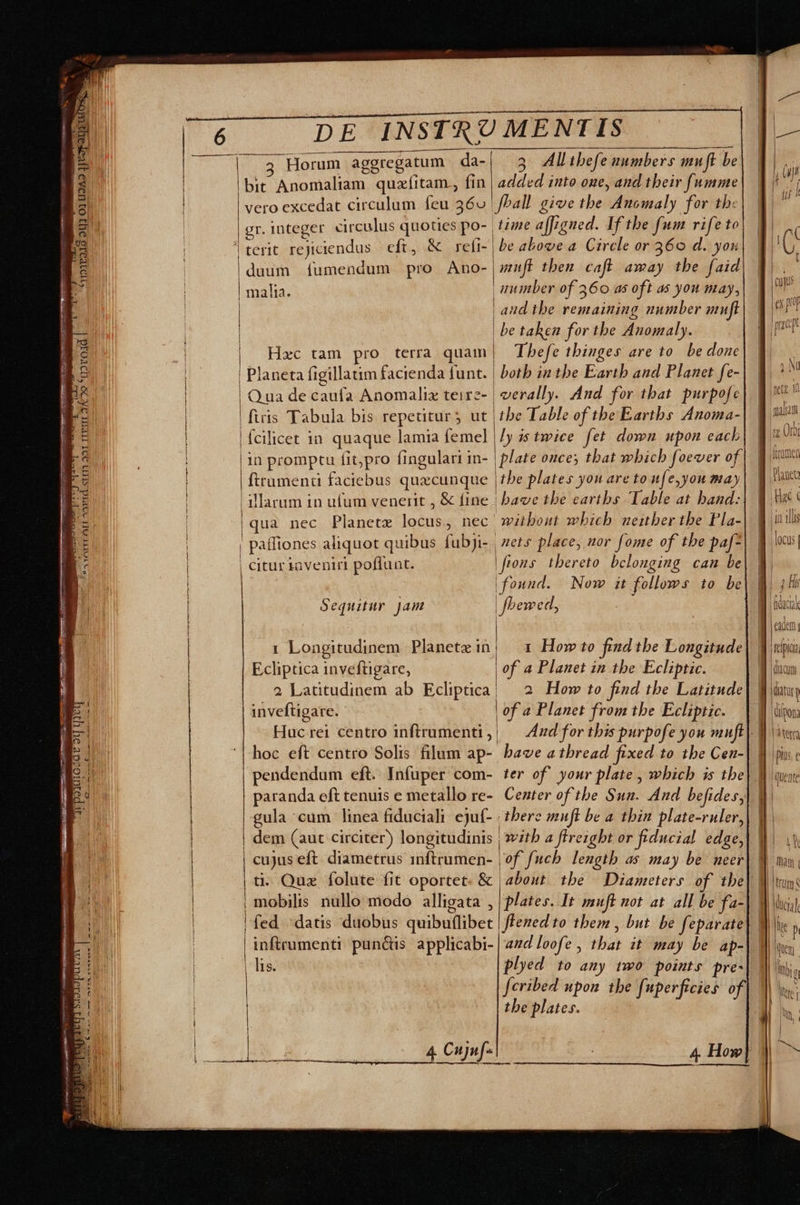 6 DE INSTRUMENTIS
3 Horum aggregatum da-
bit Anomaliam quæſitam, ſin
vero excedat circulum ſeu 360
gr. integer circulus quoties po-
terit rejiciendus eſt, & reſi-
duum ſumendum pro Ano-
malia.
Hæc tam pro terra quam
Planeta ſigillatim facienda ſunt.
Qua de cauſa Anomaliæ terre-
ſtris Tabula bis repetitur; ut
ſcilicet in quaque lamia ſemel
in promptu ſit, pro ſingulari in-
ſtrumenti faciebus quæcunque
illarum in uſum venerit, & ſine
qua nec Planetæ locus, nec
paſſiones aliquot quibus ſubji-
citur inveniri poſſunt.
Sequitur jam
1 Longitudinem Planetæ in
Ecliptica inveſtigare,
2 Latitudinem ab Ecliptica
inveſtigare.
Huc rei centro inſtrumenti,
hoc eſt centro Solis filum ap-
pendendum eſt. Inſuper com-
paranda eſt tenuis e metallo re-
gula cum linea fiduciali ejuſ-
dem (aut circiter) longitudinis
cujus eſt diametrus inſtrumen-
ti. Quæ ſolute ſit oportet. &
mobilis nullo modo alligata,
ſed datis duobus quibuſlibet
inſtrumenti punctis applicabi-
lis.
4 Cujuſ-
3 All theſe numbers muſt be
added into one, and their ſumme
ſhall give the Anomaly for the
time aſſigned. If the ſum riſe to
be above a Circle or 360 d. you
muſt then caſt away the ſaid
number of 360 as oft as you may,
and the remaining number muſt
be taken for the Anomaly.
Theſe thinges are to be done
both in the Earth and Planet ſe-
verally. And for that purpoſe
the Table of the Earths Anoma-
ly is twice ſet down upon each
plate once; that which ſoever of
the plates you are to uſe, you may
have the earths Table at hand:
without which neither the Pla-
nets place, nor ſome of the paſ-
ſions thereto belonging can be
found. Now it follows to be
ſhewed,
1 How to find the Longitude
of a Planet in the Ecliptic.
2 How to find the Latitude
of a Planet from the Ecliptic.
And for this purpoſe you muſt
have a thread fixed to the Cen-
ter of your plate, which is the
Center of the Sun. And beſides,
there muſt be a thin plate-ruler,
with a ſtreight or fiducial edge,
of ſuch length as may be neer
about the Diameters of the
plates. It muſt not at all be fa-
ſtened to them, but be ſeparate
and looſe, that it may be ap-
plyed to any two points pre-
ſcribed upon the ſuperficies of
the plates.
4. How